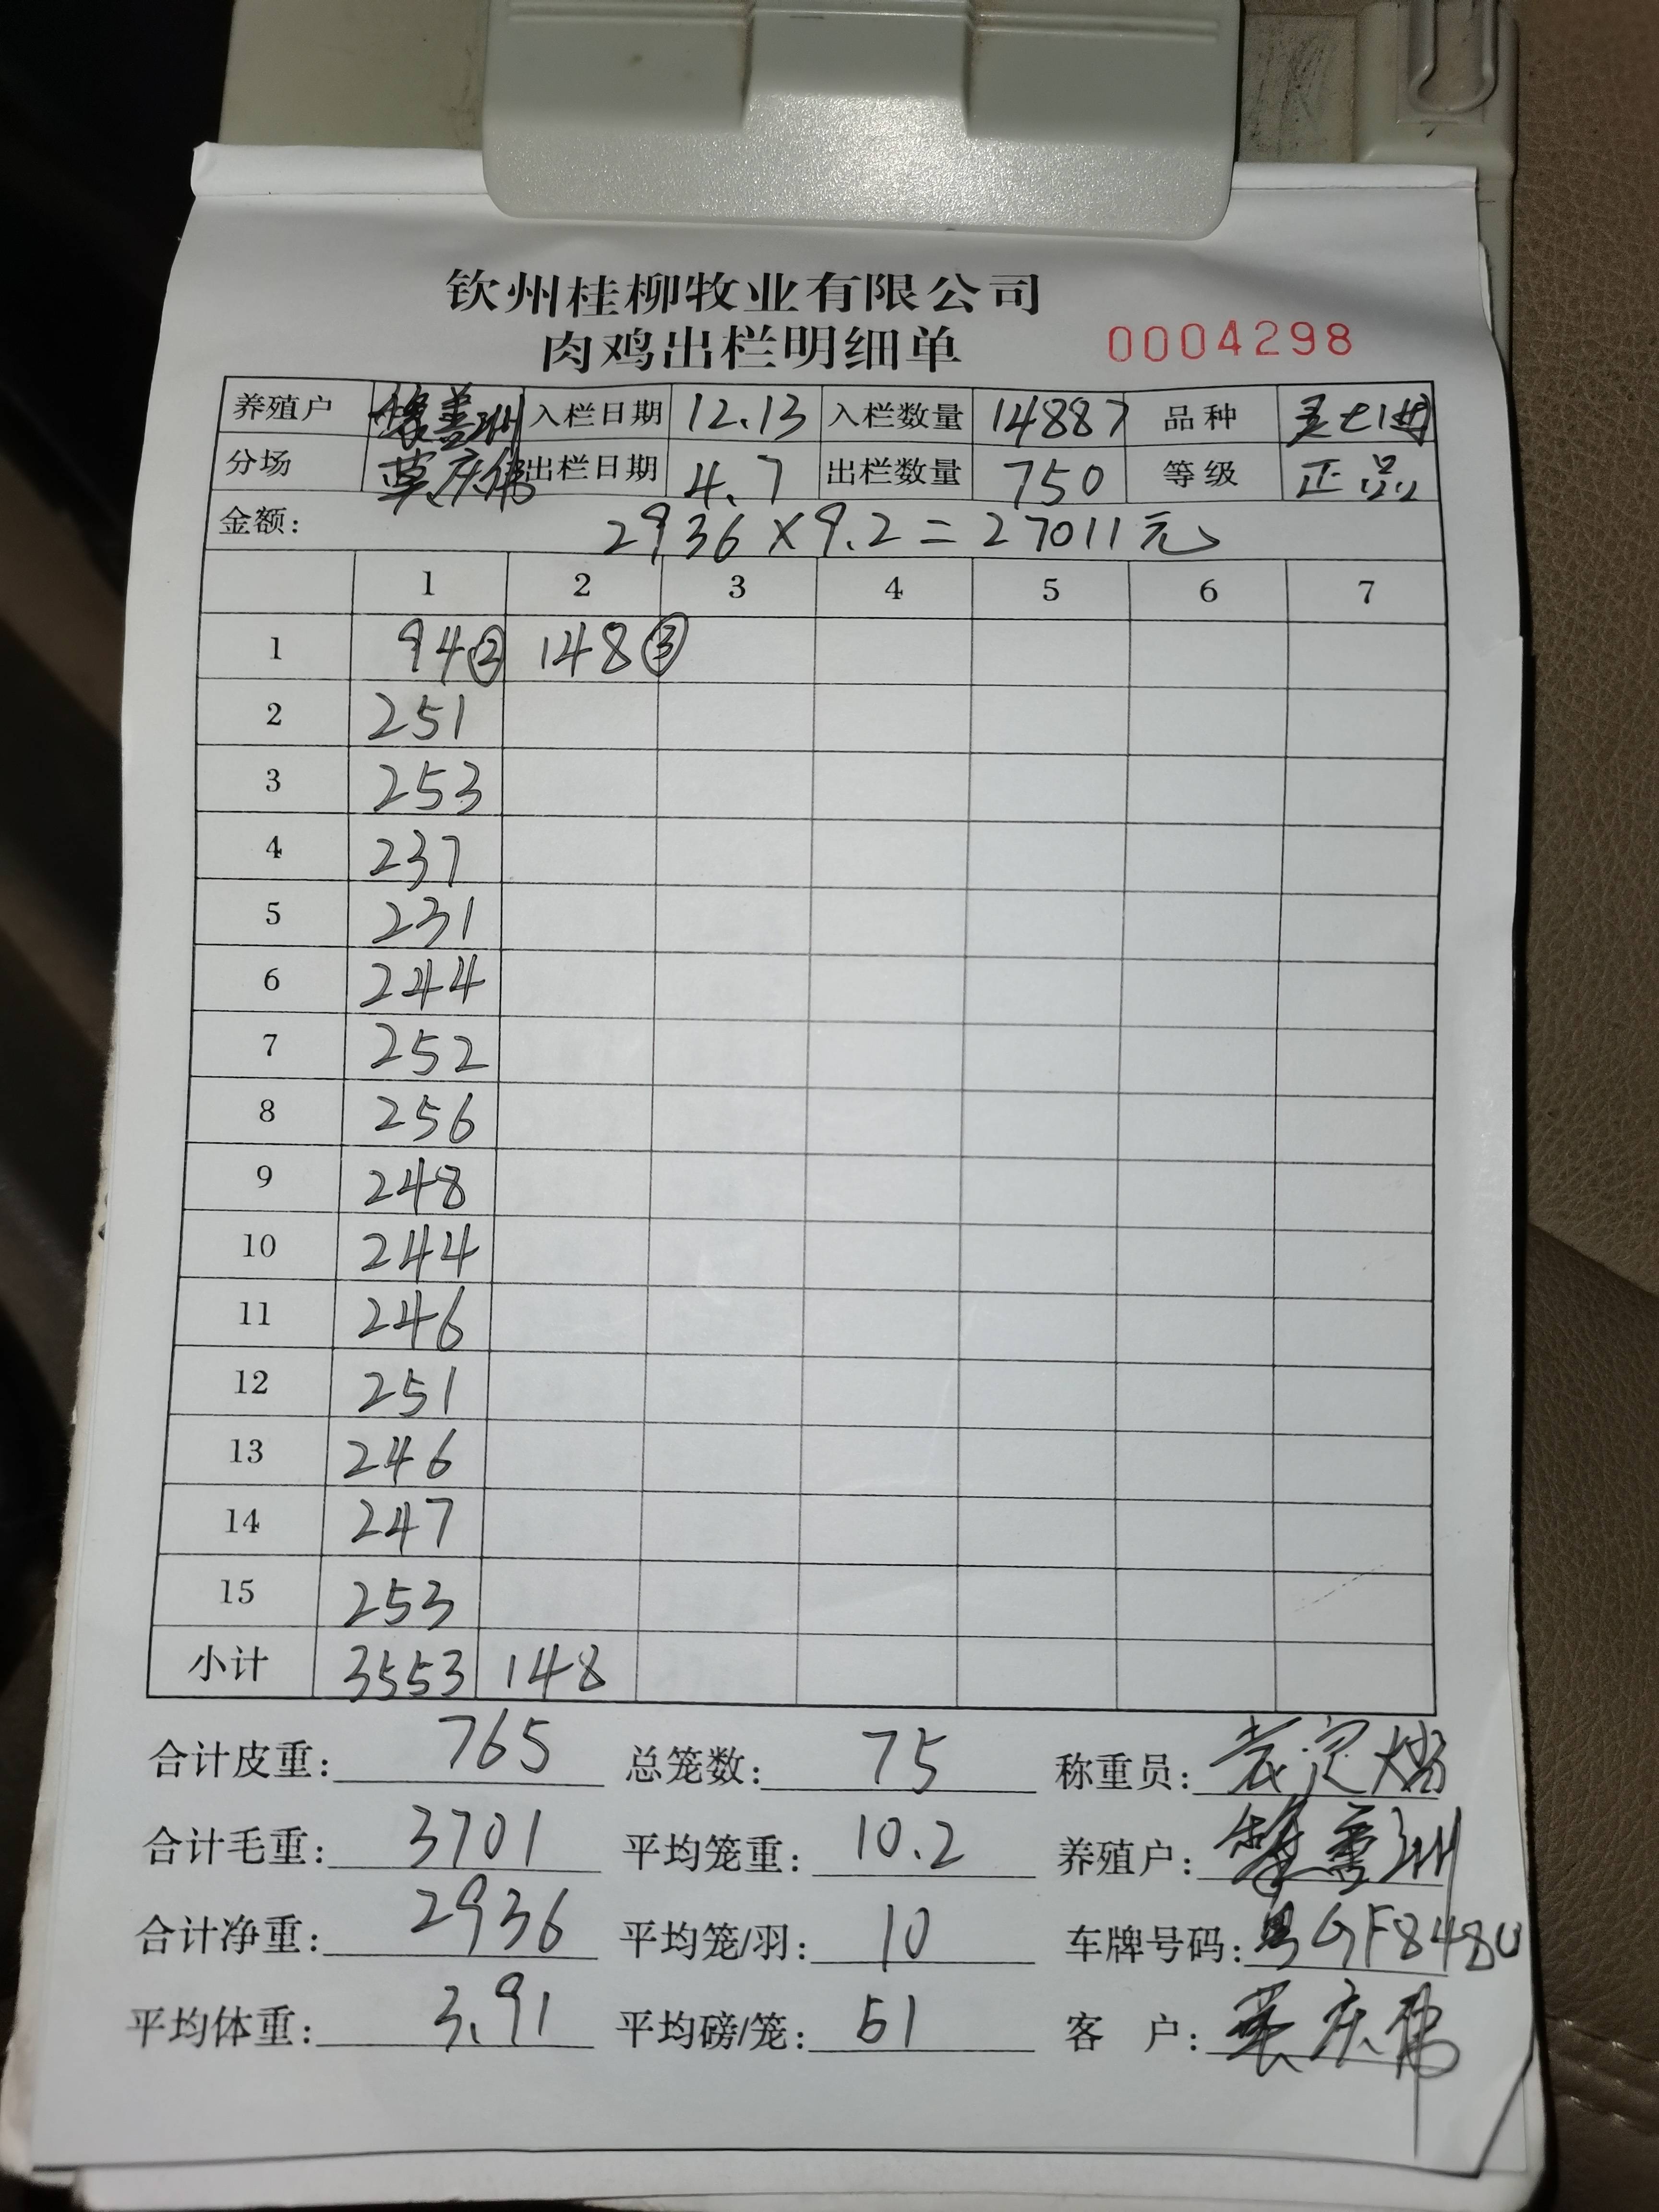 钦州桂柳牧业有限公司
肉鸡出栏明细单 0004298
养殖户 入栏日期 12.13 入栏数量 14887 品种
分场 莫庆伟 出栏日期 4.7 出栏数量 750 等级 正品
金额: 2936×9.2=27011元
1 2 3 4 5 6 7
1 94② 148③
2 251
3 253
4 237
5 231
6 244
7 252
8 256
9 248
10 244
11 246
12 251
13 246
14 247
15 253
小计 3553 148
合计皮重: 765 总笼数: 75 称重员:
合计毛重: 3701 平均笼重: 10.2 养殖户:
合计净重: 2936 平均笼/羽: 10 车牌号码: 粤GF8480
平均体重: 3.91 平均磅/笼: 51 客 户: 莫庆伟